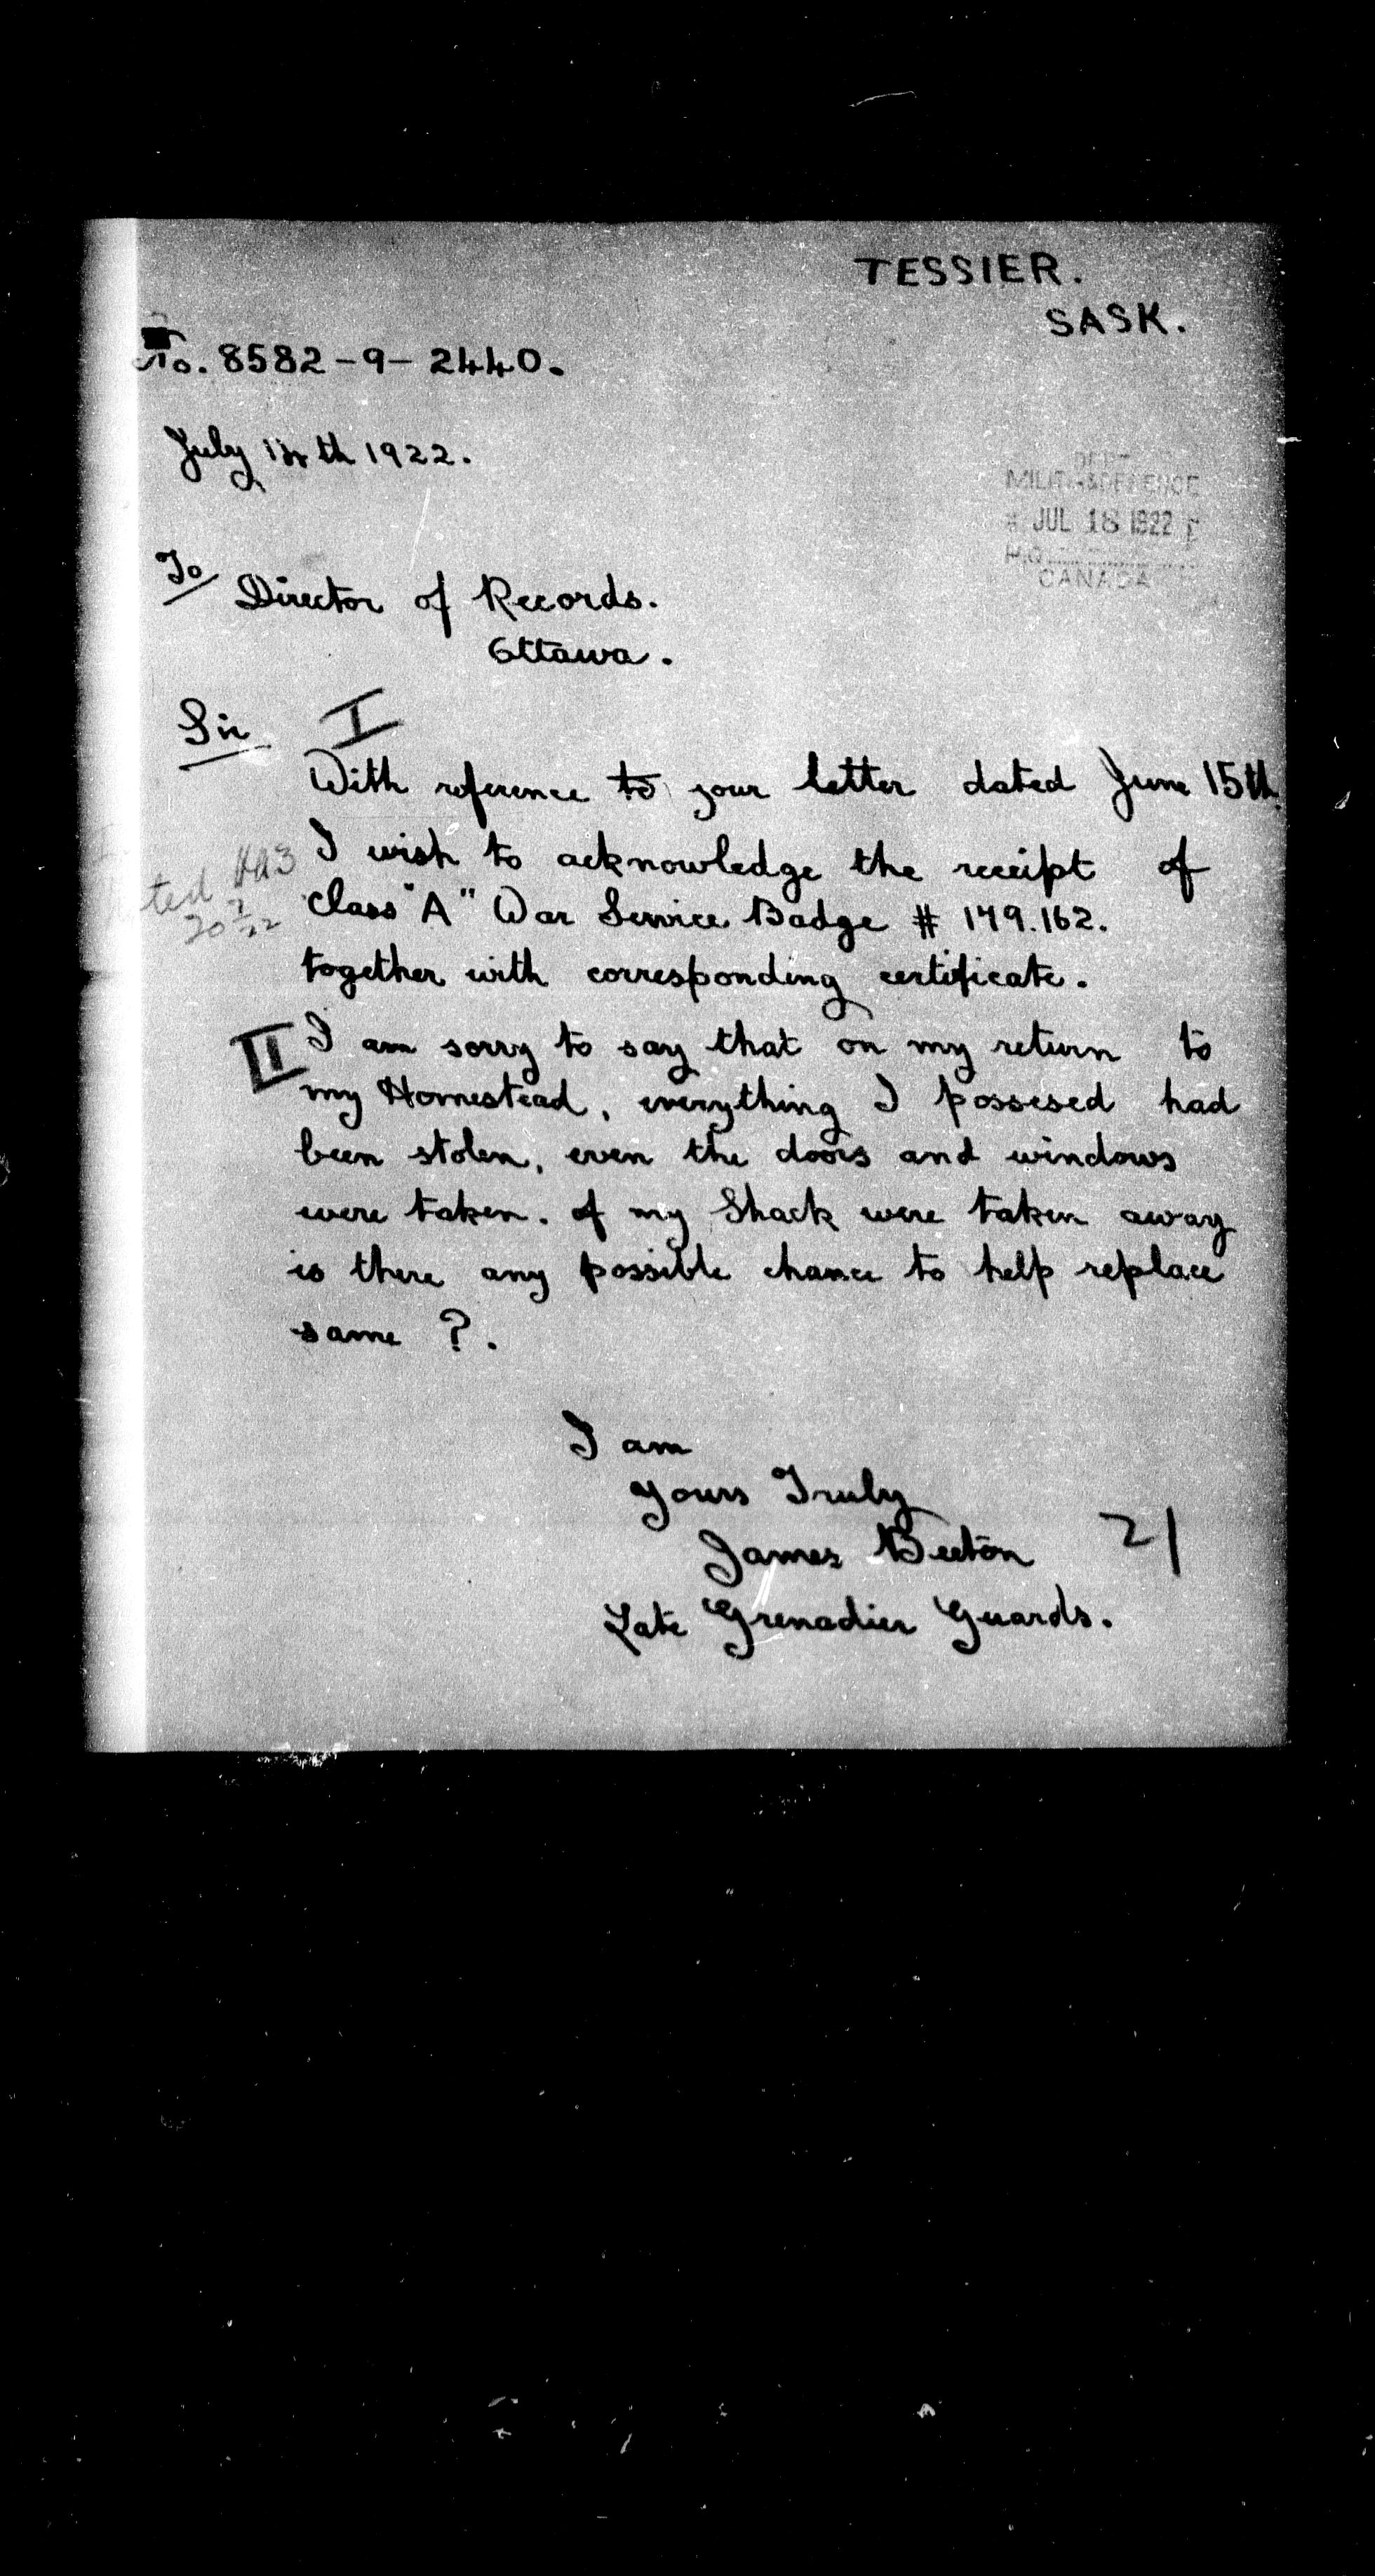 TESSIER.
SASK.
No. 8582-9-2440.
July 14th 1922.
DEPT
MILITIA & DEFENCE
JUL 18 1922
H.Q.
CANADA
To
Director of Records.
Ottawa.
Sir
I
With reference to your letter dated June 15th.
I wish to acknowledge the receipt of
Class "A" War Service Badge # 179.162.
together with corresponding certificate.
II
I am sorry to say that on my return to
my Homestead, everything I possesed had
been stolen, even the doors and windows
were taken. of my Shack were taken away
is there any possible chance to help replace
same ?.
I am
Yours Truly
James Beeton
21
Late Grenadier Guards.